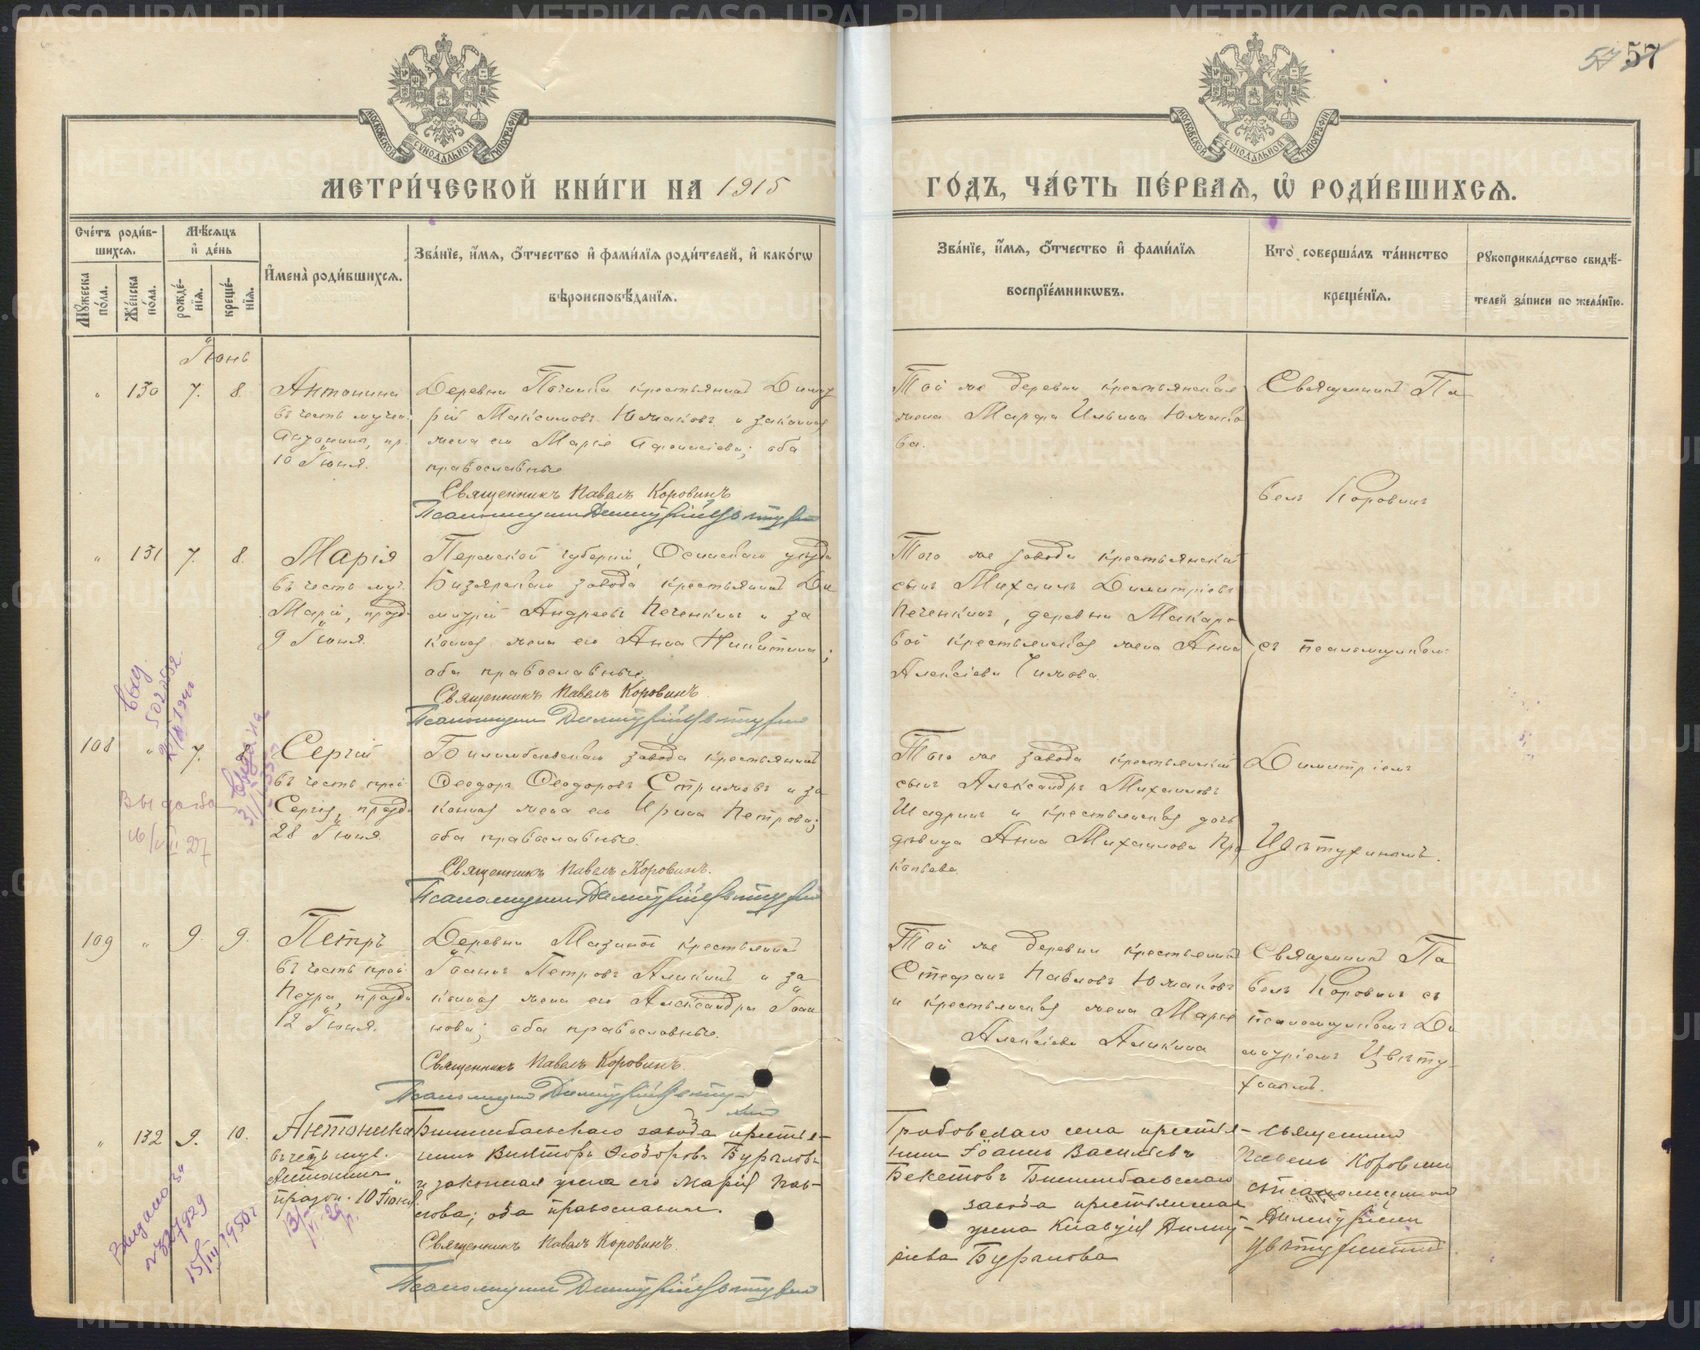 57 57
МОСКОВСКОЙ СѴНОДАЛЬНОЙ ТИПОГРАФІИ
МОСКОВСКОЙ СѴНОДАЛЬНОЙ ТИПОГРАФІИ
МЕТРИ́ЧЕСКОЙ КНИ́ГИ НА 1915
ГО́ДЪ, ЧА́СТЬ ПЕ́РВАѦ, Ѡ҆ РОДИ́ВШИХСѦ.
Сче́тъ роди́в-
шихсѧ.
Мꙋ́жеска по́ла.
Же́нска по́ла.
Мѣ́сѧцъ
и҆ де́нь
рожде́-
нїѧ.
креще́-
нїѧ.
И҆мена̀ роди́вшихсѧ.
Зва́нїе, и҆́мѧ, ѻ҆́тчество и҆ фами́лїѧ роди́телей, и҆ како́гѡ
вѣроисповѣ́данїѧ.
Зва́нїе, и҆́мѧ, ѻ҆́тчество и҆ фами́лїѧ
воспрїе́мникѡвъ.
Кто̀ соверша́лъ та́инство
креще́нїѧ.
Рꙋкоприкла́дство свидѣ́-
телей за́писи по жела́нїю.
Іюнь
" 130 7. 8.
Антонина
въ честь мучен.
Антонины, пр.
10 Іюня.
Деревни крестьянинъ Димит-
рій Максимовъ Южаковъ и законная
жена его Марія; оба
православные
Священникъ Павелъ Коровинъ
Псаломщикъ Димитрій Цвѣтухин
Той же деревни крестьянская
жена Марфа Ильина Южако-
ва.
Священникъ Па-
велъ Коровинъ
" 131 7. 8.
Марія
въ честь муч.
Маріи, празд.
9 Іюня
Пермской губерніи, Осинскаго уѣзда
Бизярскаго завода, крестьянинъ Ди-
митрій Андреевъ Печенкинъ и за-
конная жена его Анна Никитина;
оба православные.
Священникъ Павелъ Коровинъ
Псаломщикъ Димитрій Цвѣтухин
Того же завода крестьянскій
сынъ Михаилъ Димитріевъ
Печенкинъ, деревни Макаро-
вой крестьянская жена Анна
Алексіева
съ псаломщикомъ
108 " 7.
Сергій
въ честь преп.
Сергія, празд.
28 Іюня.
Билимбаевскаго завода крестьянинъ
Ѳеодоръ Ѳеодоровъ Стрижовъ и за-
конная жена его Ирина Петрова;
оба православные.
Священникъ Павелъ Коровинъ.
Псаломщикъ Димитрій Цвѣтухин
Того же завода крестьянскій
сынъ Александръ Михаиловъ
Шадринъ и крестьянская дочь
дѣвица Анна Михаилова Про-
копьева
Димитріемъ
Цвѣтухинымъ.
109 " 9. 9.
Петръ
въ честь преп.
Петра, празд.
12 Іюня.
Деревни Мазиной крестьянинъ
Іоаннъ Петровъ Аликинъ и за-
конная жена его Александра Іоан-
нова; оба православные.
Священникъ Павелъ Коровинъ.
Псаломщикъ Димитрій Цвѣту-
хин
Той же деревни крестьянинъ
Стефанъ Павловъ Южаковъ
и крестьянская жена Марья
Алексіева Аликина
Священникъ Па-
велъ Коровинъ съ
псаломщикомъ Ди-
митріемъ Цвѣту-
хинымъ.
" 132 9. 10.
Антонина
въ честь муч.
Антонины
праздн. 10 Іюня
Билимбаевскаго завода крестья-
нинъ Викторъ Ѳеодоровъ Бурылов
и законная жена его Марія Пав-
лова; оба православные.
Священникъ Павелъ Коровинъ.
Псаломщикъ Димитрій Цвѣтухин
Гробовскаго села крестья-
нинъ Іоаннъ Васильевъ
Бекетовъ Билимбаевскаго
завода крестьянская
жена Клавдія Димит-
ріева Бурылова
Священникъ
Павелъ Коровинъ
съ псаломщикомъ
Димитріемъ
Цвѣтухинымъ
Выдано
METRIKI.GASO-URAL.RU